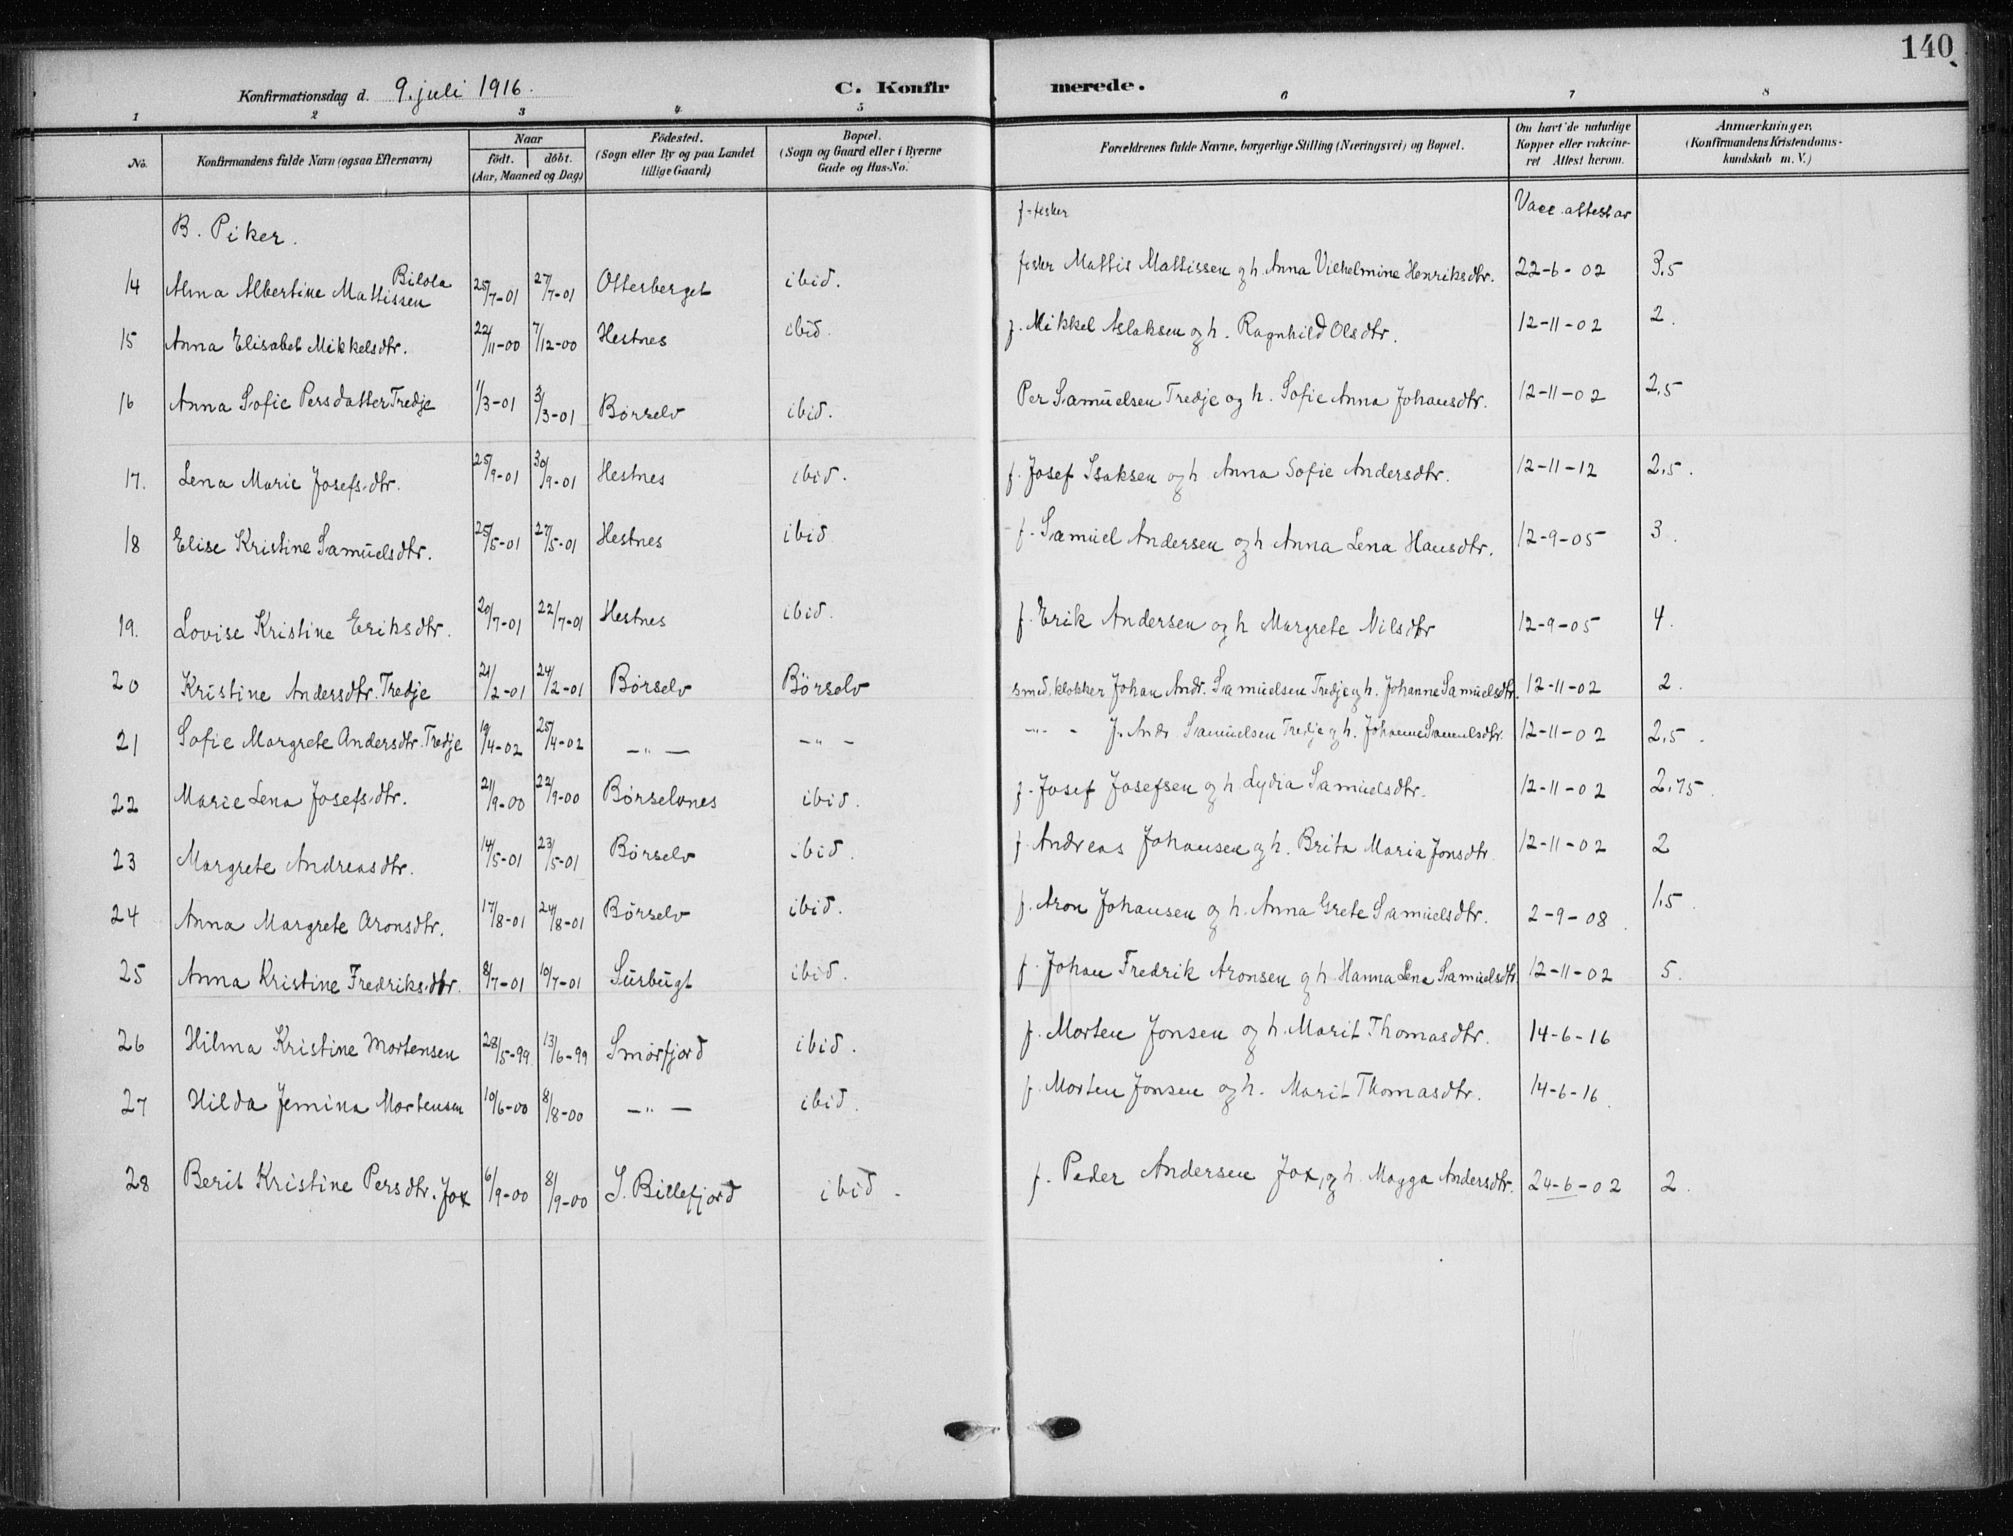 140
Konfirmationsdag d. 9. juli 1916.
C. Konfirmerede.
1 2 3 4 5 6 7 8
No. Konfirmandens fulde Navn (ogsaa Efternavn) Naar født. døbt. (Aar, Maaned og Dag) Fødested. (Sogn eller By og paa Landet tillige Gaard) Bopæl. (Sogn og Gaard eller i Byerne Gade og Hus-No. Forældrenes fulde Navne, borgerlige Stilling (Næringsvei) og Bopæl. Om havt de naturlige Kopper eller vakcineret Attest herom. Anmærkninger. (Konfirmandens Kristendomskundskab m. V.)
B. Piker. f = fisker Vacc. attest av
14 Alma Albertine Mattissen Bilola 25/7-01 27/7-01 Otterberget ibid. fisker Mattis Mattissen og h. Anna Vilhelmine Henriksdtr. 22-6-02 3,5
15 Anna Elisabet Mikkelsdtr. 22/11-00 7/12-00 Hestnes ibid. f. Mikkel Aslaksen og h. Ragnhild Olsdtr. 12-11-02 2.
16 Anna Sofie Persdatter Tredje 1/3-01 3/3-01 Børselv ibid. Per Samuelsen Tredje og h. Sofie Anna Johansdtr. 12-11-02 2,5
17. Lena Marie Josefs.dtr. 25/9-01 30/9-01 Hestnes ibid. f. Josef Isaksen og h Anna Sofie Andersdtr. 12-11-12 2,5.
18 Elise Kristine Samuelsdtr. 25/5-01 27/5-01 Hestnes ibid f. Samuel Andersen og h Anna Lena Hansdtr. 12-9-05 3.
19. Lovise Kristine Eriksdtr. 20/7-01 22/7-01 Hestnes ibid. f. Erik Andersen og h Margrete Nilsdtr 12-9-05 4.
20 Kristine Andersdtr. Tredje 21/2-01 24/2-01 Børselv Börselv smed, klokker Johan Andr. Samuelsen Tredje og h. Johanne Samuelsdtr. 12-11-02 2.
21 Sofie Margrete Andersdtr. Tredje 19/4-02 25/4-02 — " — — " — — " — J. Andr. Samuelsen Tredje og h. Johanne Samuelsdtr. 12-11-02 2,5.
22 Marie Lena Josefs.dtr. 21/9-00 22/9-00 Børselvnes ibid. f. Josef Josefsen og h. Lydia Samuelsdtr. 12-11-02 2,75.
23 Margrete Andreasdtr. 14/5-01 23/5-01 Børselv ibid. f. Andreas Johansen og h. Brita Maria Jonsdtr. 12-11-02 2
24 Anna Margrete Aronsdtr. 17/8-01 24/8-01 Børselv ibid. f. Aron Johansen og h. Anna Grete Samuelsdtr. 2-9-08. 1,5.
25 Anna Kristine Fredriks.dtr. 8/7-01 10/7-01 Surbugt ibid. f. Johan Fredrik Aronsen og h Hanna Lena Samuelsdtr. 12-11-02 5.
26 Hilma Kristine Mortensen 28/5-99 13/6-99 Smørfjord ibid. f. Morten Jonsen og h. Marit Thomasdtr. 14-6-16
27 Hilda Jemina Mortensen 10/6-00 8/8-00 — " — ibid. f. Morten Jonsen og h. Marit Thomasdtr. 14-6-16.
28 Berit Kristine Persdtr. Jox 6/9-00 8/9-00 I. Billefjord ibid. f. Peder Andersen Jox, og h. Magga Andersdtr. 24-6-02 2.